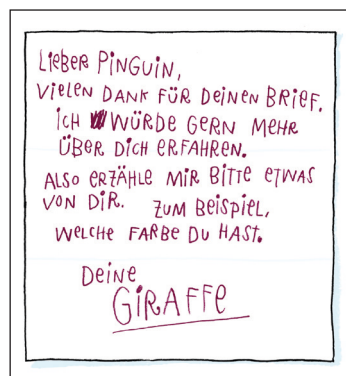 LIEBER PINGUIN,
VIELEN DANK FÜR DEINEN BRIEF.
ICH WÜRDE GERN MEHR
ÜBER DICH ERFAHREN.
ALSO ERZÄHLE MIR BITTE ETWAS
VON DIR. ZUM BEISPIEL,
WELCHE FARBE DU HAST.
DEINE
GIRAFFE